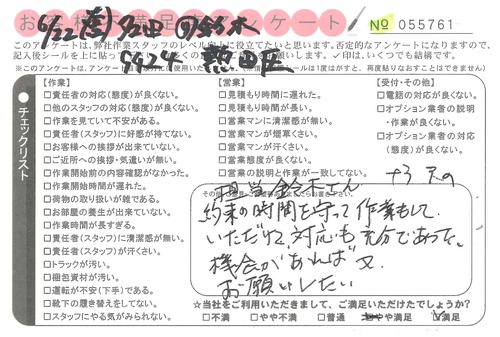 お客様満足度アンケート
No 055761
このアンケートは、弊社作業スタッフのレベル向上に役立てたいと思います。否定的なアンケートになりますので、
記入後シールを上に貼って
お願いします。✓印は、いくつでも結構です。
チェックリスト
【作業】
□責任者の対応(態度)が良くない。
□他のスタッフの対応(態度)が良くない。
□作業を見ていて不安がある。
□責任者(スタッフ)に好感が持てない。
□お客様への挨拶が出来ていない。
□ご近所への挨拶・気遣いが無い。
□作業開始前の内容確認がなかった。
□作業開始時間が遅れた。
□荷物の取り扱いが雑である。
□お部屋の養生が出来ていない。
□作業時間が長すぎる。
□責任者(スタッフ)に清潔感が無い。
□責任者(スタッフ)が汗くさい。
□トラックが汚い。
□梱包資材が汚い。
□運転が不安(下手)である。
□靴下の履き替えをしてない。
□スタッフにやる気がみられない。
【営業】
□見積もり時間に遅れた。
□見積もり時間が長い。
□営業マンに清潔感が無い。
□営業マンが煙草くさい。
□営業マンが汗くさい。
□営業態度が良くない。
□営業の説明と作業が一致してない。
【受付・その他】
□電話の対応が良くない。
□オプション業者の説明
・作業が良くない。
□オプション業者の対応
(態度)が良くない。
担当鈴木さん
約束の時間を守って作業もして
いただけて、対応も充分であった。
機会があれば又
お願いしたい
☆当社をご利用いただきまして、ご満足いただけたでしょうか?
□不満 □やや不満 □普通 □やや満足 □満足